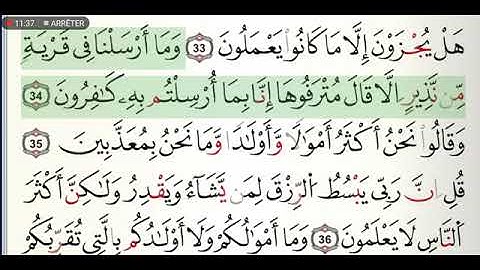 11:37. ■ ARRÊTER
هَلْ يُجْزَوْنَ إِلَّا مَا كَانُوا۟ يَعْمَلُونَ 33 وَمَا أَرْسَلْنَا فِى قَرْيَةٍ
مِّن نَّذِيرٍ إِلَّا قَالَ مُتْرَفُوهَا إِنَّا بِمَا أُرْسِلْتُم بِهِۦ كَـٰفِرُونَ 34
وَقَالُوا۟ نَحْنُ أَكْثَرُ أَمْوَٰلًا وَأَوْلَـٰدًا وَمَا نَحْنُ بِمُعَذَّبِينَ 35
قُلْ إِنَّ رَبِّى يَبْسُطُ ٱلرِّزْقَ لِمَن يَشَآءُ وَيَقْدِرُ وَلَـٰكِنَّ أَكْثَرَ
ٱلنَّاسِ لَا يَعْلَمُونَ 36 وَمَا أَمْوَٰلُكُمْ وَلَا أَوْلَـٰدُكُم بِٱلَّتِى تُقَرِّبُكُمْ